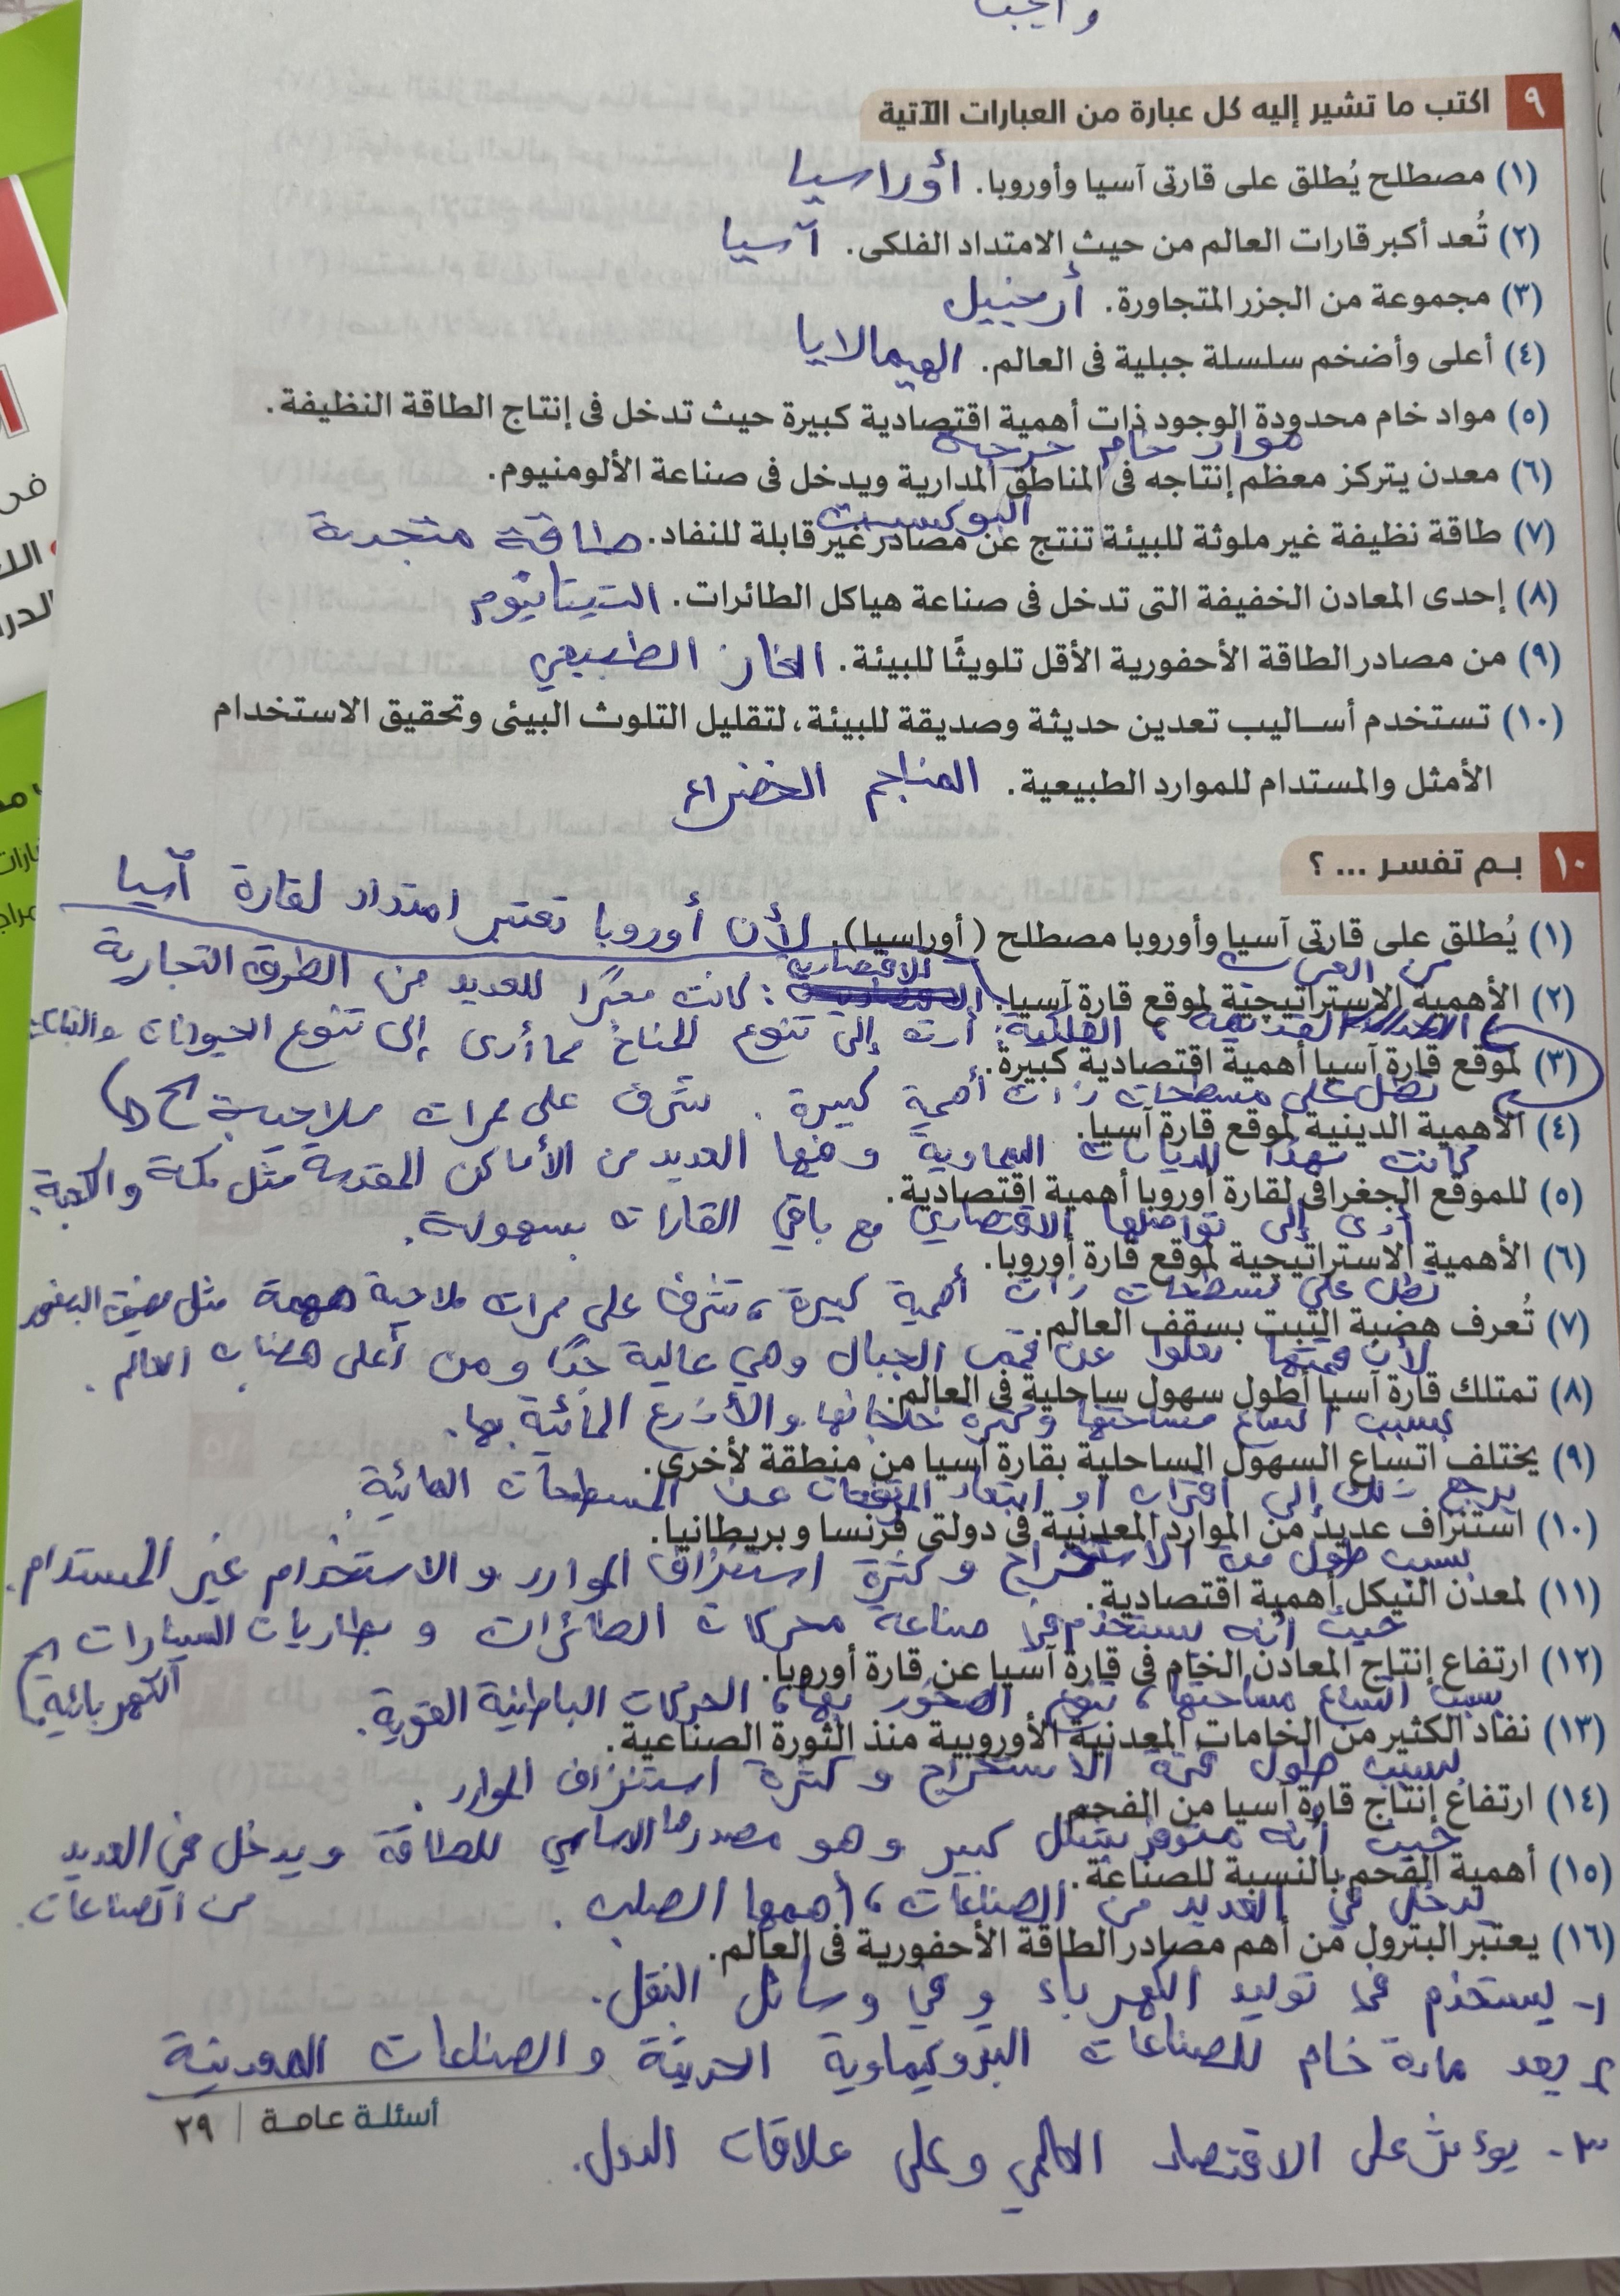 واجب
٩ اكتب ما تشير إليه كل عبارة من العبارات الآتية
(١) مصطلح يُطلق على قارتى آسيا وأوروبا. أوراسيا
(٢) تُعد أكبر قارات العالم من حيث الامتداد الفلكى. آسيا
(٣) مجموعة من الجزر المتجاورة. أرخبيل
(٤) أعلى وأضخم سلسلة جبلية فى العالم. الهيمالايا
(٥) مواد خام محدودة الوجود ذات أهمية اقتصادية كبيرة حيث تدخل فى إنتاج الطاقة النظيفة.
مواد خام حرجة
(٦) معدن يتركز معظم إنتاجه فى المناطق المدارية ويدخل فى صناعة الألومنيوم.
البوكسيت
(٧) طاقة نظيفة غير ملوثة للبيئة تنتج عن مصادر غير قابلة للنفاد. طاقة متجددة
(٨) إحدى المعادن الخفيفة التى تدخل فى صناعة هياكل الطائرات. التيتانيوم
(٩) من مصادر الطاقة الأحفورية الأقل تلويثًا للبيئة. الغاز الطبيعي
(١٠) تستخدم أساليب تعدين حديثة وصديقة للبيئة، لتقليل التلوث البيئى وتحقيق الاستخدام
الأمثل والمستدام للموارد الطبيعية. المناجم الخضراء
١٠ بم تفسر ... ؟
(١) يُطلق على قارتى آسيا وأوروبا مصطلح (أوراسيا). لأن أوروبا تعتبر امتداد لقارة آسيا
(٢) الأهمية الاستراتيجية لموقع قارة آسيا. الاقتصادية: كانت معبرًا للعديد من الطرق التجارية
القديمة، الفلكية: أدت إلى تنوع المناخ مما أدى إلى تنوع الحيوانات والنباتات
(٣) لموقع قارة آسيا أهمية اقتصادية كبيرة.
تطل على مسطحات ذات أهمية كبيرة. تشرف على ممرات ملاحية
(٤) الأهمية الدينية لموقع قارة آسيا.
كانت مهدًا للديانات السماوية وفيها العديد من الأماكن المقدسة مثل مكة والكعبة.
(٥) للموقع الجغرافى لقارة أوروبا أهمية اقتصادية.
أدى إلى تواصلها الاقتصادي مع باقي القارات بسهولة.
(٦) الأهمية الاستراتيجية لموقع قارة أوروبا.
تطل على مسطحات ذات أهمية كبيرة، تشرف على ممرات ملاحية مهمة مثل مضيق البسفور
(٧) تُعرف هضبة التبت بسقف العالم.
لأن قمتها تعلوا عن قمم الجبال وهي عالية جدًا ومن أعلى هضاب العالم.
(٨) تمتلك قارة آسيا أطول سهول ساحلية فى العالم.
بسبب اتساع مساحتها وكثرة خلجانها والأذرع المائية بها.
(٩) يختلف اتساع السهول الساحلية بقارة آسيا من منطقة لأخرى.
يرجع ذلك إلى اقتراب أو ابتعاد المرتفعات عن المسطحات المائية.
(١٠) استنزاف عديد من الموارد المعدنية فى دولتى فرنسا وبريطانيا.
بسبب طول مدة الاستخراج وكثرة استنزاف الموارد والاستخدام غير المستدام.
(١١) لمعدن النيكل أهمية اقتصادية.
حيث أنه يستخدم في صناعة محركات الطائرات وبطاريات السيارات
الكهربائية.
(١٢) ارتفاع إنتاج المعادن الخام فى قارة آسيا عن قارة أوروبا.
بسبب اتساع مساحتها، تنوع الصخور بها، الحركات الباطنية القوية.
(١٣) نفاد الكثير من الخامات المعدنية الأوروبية منذ الثورة الصناعية.
بسبب طول فترة الاستخراج وكثرة استنزاف الموارد.
(١٤) ارتفاع إنتاج قارة آسيا من الفحم.
حيث أنه متوفر بشكل كبير وهو مصدرها الأساسي للطاقة ويدخل في العديد
من الصناعات.
(١٥) أهمية الفحم بالنسبة للصناعة.
يدخل في العديد من الصناعات، أهمها الصلب.
(١٦) يعتبر البترول من أهم مصادر الطاقة الأحفورية فى العالم.
١- يستخدم في توليد الكهرباء وفي وسائل النقل.
٢- يعد مادة خام للصناعات البتروكيماوية الحديثة والصناعات المعدنية
أسئلة عامة | ٢٩
٣- يؤثر على الاقتصاد العالمي وعلى علاقات الدول.